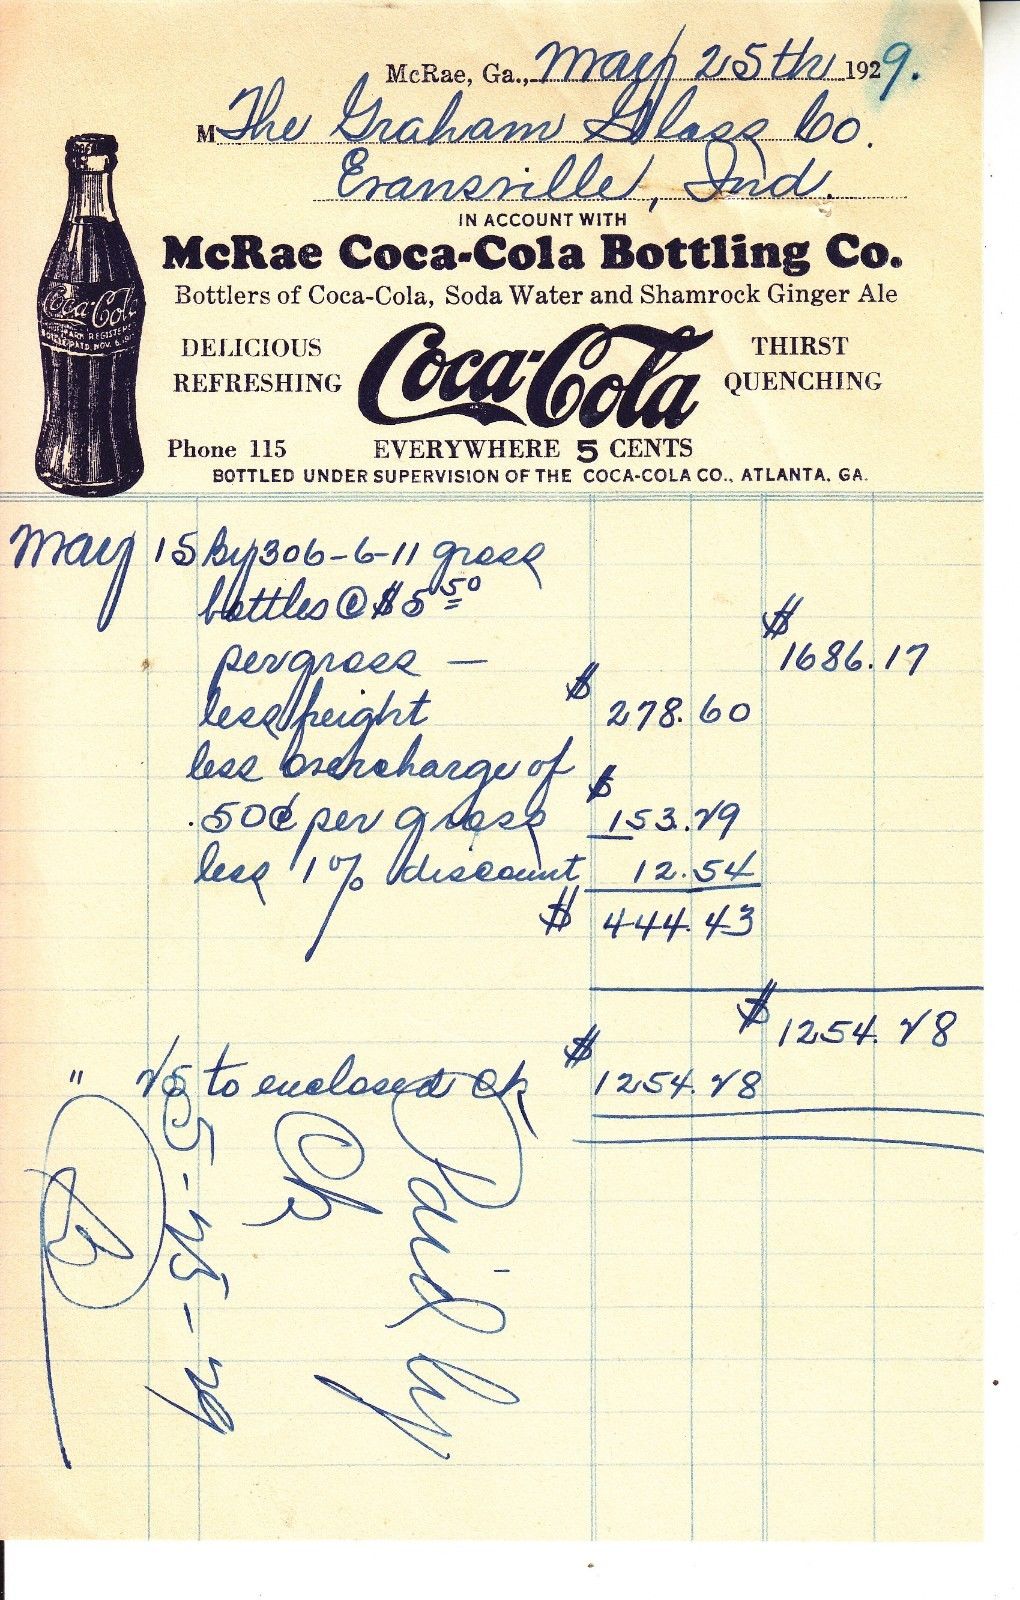 McRae, Ga., May 25th 1929.
M The Graham Glass Co.
Evansville, Ind.
IN ACCOUNT WITH
McRae Coca-Cola Bottling Co.
Bottlers of Coca-Cola, Soda Water and Shamrock Ginger Ale
DELICIOUS REFRESHING
Coca-Cola
THIRST QUENCHING
Phone 115 EVERYWHERE 5 CENTS
BOTTLED UNDER SUPERVISION OF THE COCA-COLA CO., ATLANTA, GA.
Coca-Cola
May 15 By 306-6-11 gross
bottles @ $5.50
per gross — $1686.17
less freight $278.60
less overcharge of
.50¢ per gross $153.29
less 1% discount 12.54
$444.43
$1254.28
" 25 to enclosed ck $1254.28
Paid by
Ck
5-25-29